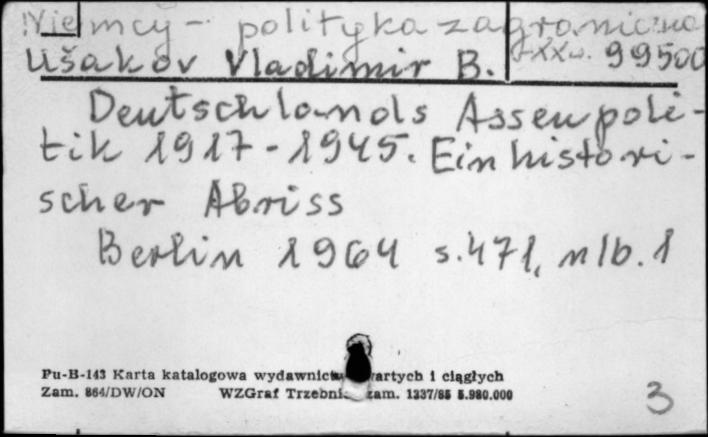 Niemcy - polityka zagraniczna
XX w. 99500
Ušakov Vladimir B.
Deutschlands Assenpoli-
tik 1917-1945. Ein histori-
scher Abriss
Berlin 1964 s.471, nlb.1
Pu-B-143 Karta katalogowa wydawnictw zwartych i ciągłych
Zam. 864/DW/ON WZGraf Trzebnica zam. 1337/85 5.980.000
3